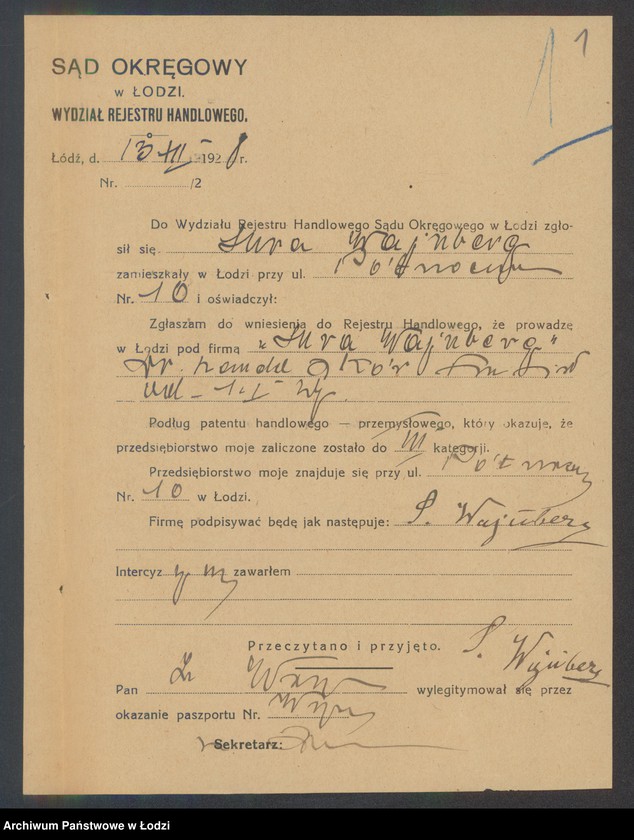 1
SĄD OKRĘGOWY
w ŁODZI.
WYDZIAŁ REJESTRU HANDLOWEGO.
Łódź, d. 13 XII 1928 r.
Nr. /2
Do Wydziału Rejestru Handlowego Sądu Okręgowego w Łodzi zgło-
sił się Sura Wajnberg
zamieszkały w Łodzi przy ul. Północna
Nr. 10 i oświadczył:
Zgłaszam do wniesienia do Rejestru Handlowego, że prowadzę
w Łodzi pod firmą „Sura Wajnberg"
handel skór
od 1.I
Podług patentu handlowego — przemysłowego, który okazuje, że
przedsiębiorstwo moje zaliczone zostało do III kategorji.
Przedsiębiorstwo moje znajduje się przy ul. Północna
Nr. 10 w Łodzi.
Firmę podpisywać będę jak następuje: S. Wajnberg
Intercyz zawarłem
Przeczytano i przyjęto. S. Wajnberg
Pan wylegitymował się przez
okazanie paszportu Nr.
Sekretarz:
Archiwum Państwowe w Łodzi